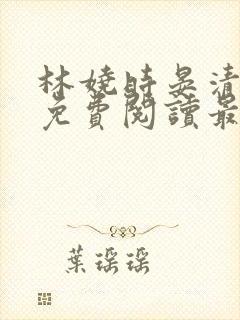 林嬈時晏清
免費閱讀最
葉瑶瑶